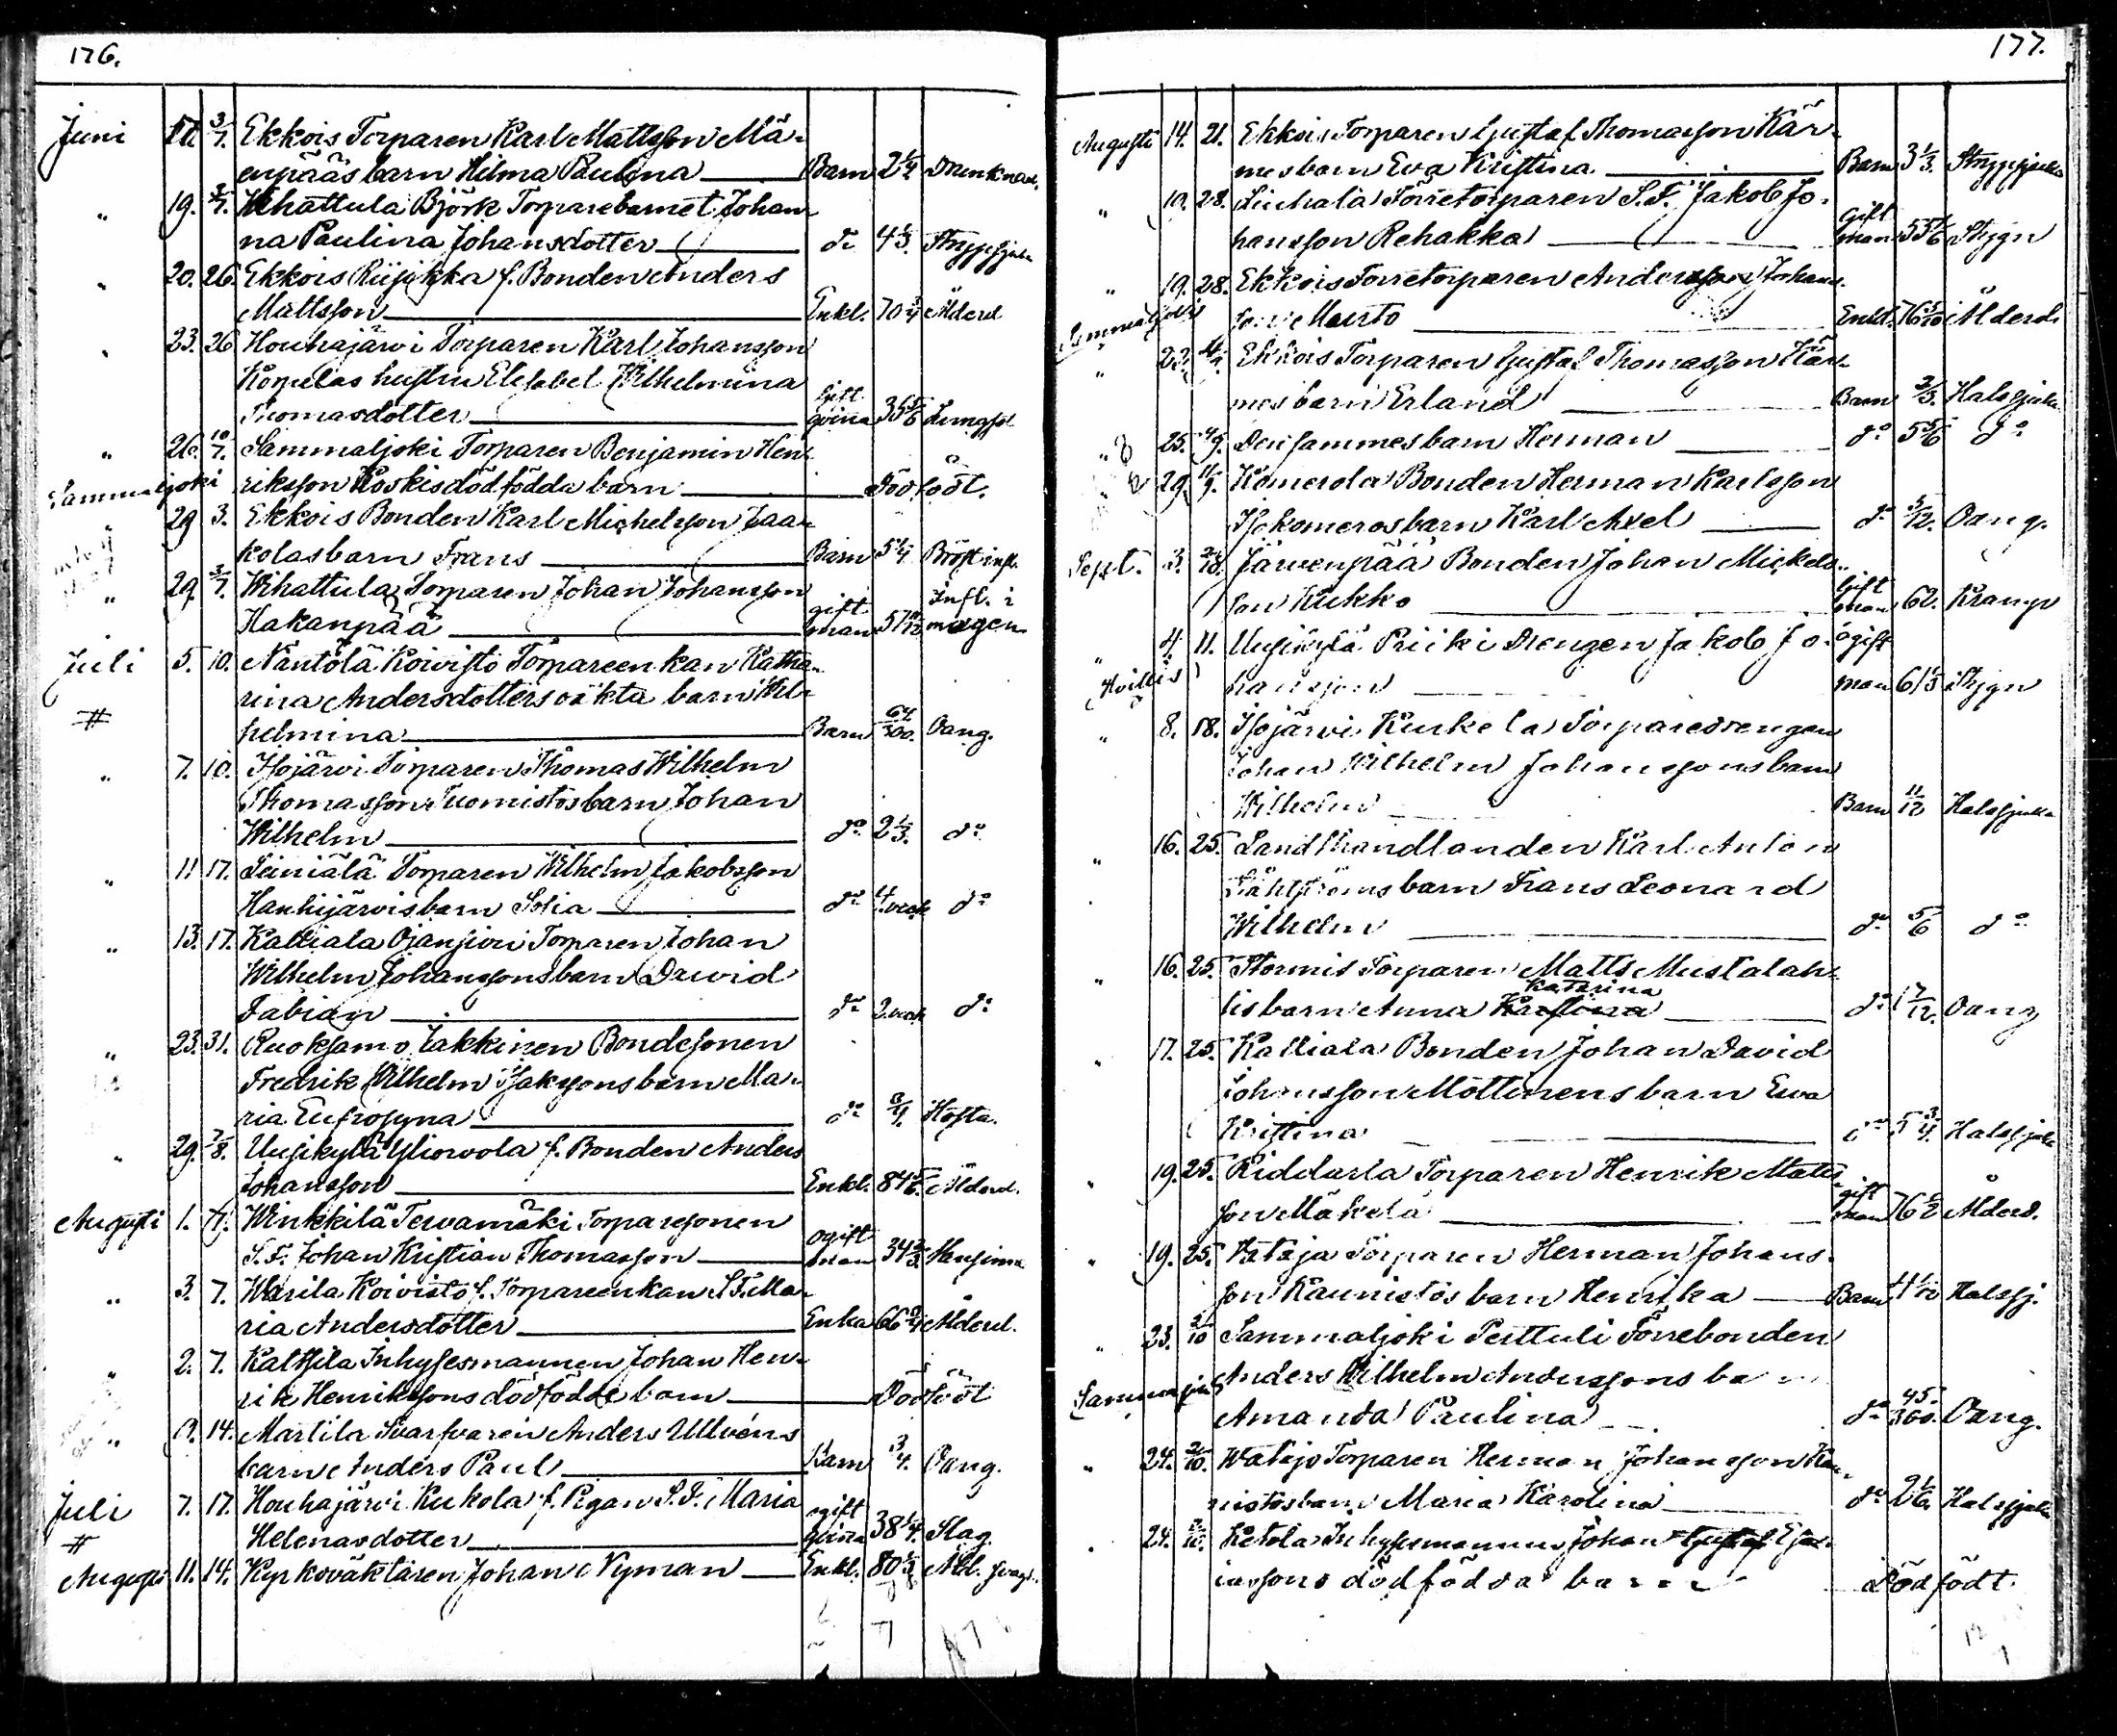 176.
Juni 17. 3/7. Ekkois Torparen Karl Mattsson Mä-
enpääs barn Hilma Paulina Barn 2 1/4 Drunknad.
" 19. 3/7. Wihattula Björk Torparebarnet Johan-
na Paulina Johansdotter do 4 1/3. Strypsjuka
" 20. 26. Ekkois Riisikka f. Bonden Anders
Mattsson Enkl. 70 Ålderd.
" 23. 26 Houhajärvi Torparen Karl Johansson
Kopulas hustru Elisabet Wilhelmina
Thomasdotter Gift qvinna 35 5/6 Lungsot
" 26. 10/7. Sammaljoki Torparen Benjamin Hen-
Sammaljoki riksson Koskis dödfödda barn Dödfödt.
" 29 3. Ekkois Bonden Karl Michelsson Jaa-
kolas barn Frans Barn 5 1/4 Bröstinfl.
" 29. 3/7. Wihattula Torparen Johan Johansson
Hakanpää gift man 57 Infl. i magen
Juli 5. 10. Näntölä Koivisto Torpareenkan Katha-
rina Andersdotters oäkta barn Wil-
# helmina Barn 64/300. Oang.
" 7. 10. Isojärvi Torparen Thomas Wilhelm
Thomasson Tuomistos barn Johan
Wilhelm do 2 1/3. do
" 11 17. Leiniälä Torparen Wilhelm Jakobsson
Hanhijärvis barn Sofia do 4 veck do
" 13. 17. Kalliala Ojansivu Torparen Johan
Wilhelm Johanssons barn David
Fabian do 2 veck do
" 23. 31. Ruoksamo Jakkinen Bondesonen
Fredrik Wilhelm Isakssons barn Ma-
ria Eufrosyna do 3/4. Hosta.
" 29. 7/8. Uusikylä Yliorvola f. Bonden Anders
Johansson Enkl. 84 5/6. Ålderd.
Augusti 1. 7. Winkkilä Tervamäki Torparesonen
S. F. Johan Kristian Thomasson ogift man 34 2/3.
" 3. 7. Warila Koivisto f. Torpareenkan S. F. Ma-
ria Andersdotter Enka 66 3/4 Ålderd.
" 2. 7. Kaltsila Inhysesmannen Johan Hen-
rik Henrikssons dödfödde barn Dödfödt
" 9. 14. Martila Svarfvaren Anders Ullvéns
barn Anders Paul Barn 3/4. Oang.
Juli 7. 17. Houhajärvi Kukola f. Pigan S. F. Maria
# Helenasdotter ogift qvinna 38 1/4. Slag
Augusti 11. 14. Kyrkoväktaren Johan Nyman Enkl. 80 1/3. Åld.
177.
Augusti 14. 21. Ekkois Torparen Gustaf Thomasson Kär-
mes barn Eva Kristina Barn 3 1/3. Strypsjuka
" 19. 28. Liuhala Förretorparen S. F. Jakob Jo-
hansson Rehakka gift man 55 1/6 Stygn
" 19. 28. Ekkois Förretorparen Andersson Johans-
Sammaljoki son Maisto Enkl. 76 Ålderd.
" 22. 4/9. Ekkois Torparen Gustaf Thomasson Kär-
mes barn Erland Barn 2/3. Halssjuka
" 25. 4/9. Densammes barn Herman do 5 5/6 do
29. 11/9. Komerola Bonden Herman Karlsson
Isokomeros barn Karl Axel do 5/12. Oang.
Sept. 3. Järvenpää Bonden Johan Mickels-
son Kukko Gift man 62. Kramp
" 4. 11. Uusikylä Priiki Drengen Jakob Jo-
Hvittis hansson ogift man 61 1/3 Stygn
" 8. 18. Isojärvi Kinkela Torparedrengen
Johan Wilhelm Johanssons barn
Wilhelm Barn 11/12 Halssjuka
" 16. 25. Landthandlanden Karl Anton
barn Frans Leonard
Wilhelm do 5/6 do
" 16. 25. Stormis Torparen Matts Mustalah-
Katarina
tis barn Anna Kristina do 1 7/12. Oang
" 17. 25. Kalliala Bonden Johan David
Johansson Mottinens barn Eva
Kristina do 5 3/4. Halssjuka
" 19. 25. Riddarla Torparen Henrik Matts-
son Mäkelä gift man 76 1/2 Ålderd.
" 19. 25. Vataja Torparen Herman Johans-
son Kaunistos barn Henrika Barn 4 Halssj.
" 23. 2/10 Sammaljoki Perttuli Förrebonden
Anders Wilhelm Anderssons barn
Sammaljoki Amanda Paulina do 45/300. Oang.
" 24. 2/10. Wataja Torparen Herman Johansson Kau-
nistos barn Maria Karolina do 2 1/6. Halssjuka
" 24. 2/10. Ketola Inhysesmannen Johan Gustaf Esa-
iassons dödfödda barn Dödfödt.